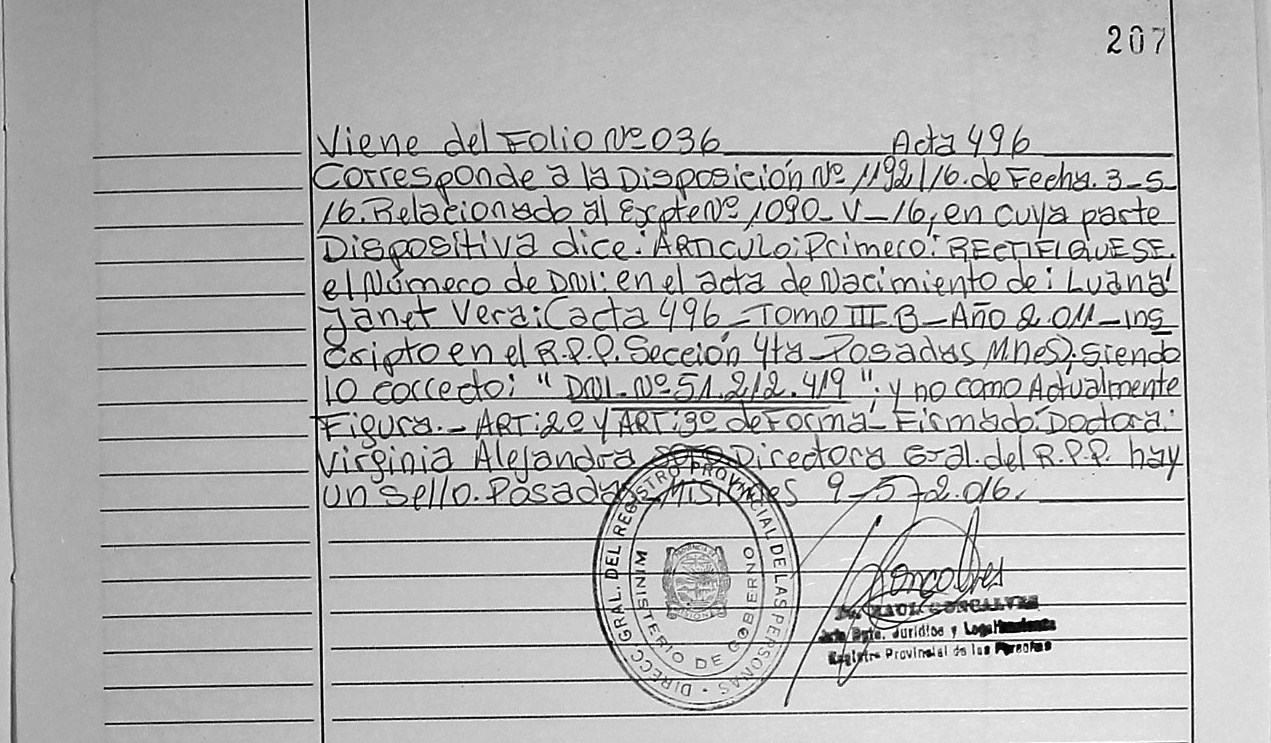 207
Viene del Folio Nº 036 Acta 496
Corresponde a la Disposición Nº 1192/16. de Fecha. 3-5-
16. Relacionado al Expte Nº 1090-V-16, en cuya parte
Dispositiva dice: ARTICULO: Primero: RECTIFIQUESE.
el Número de DNI: en el acta de Nacimiento de: Luana
Janet Vera: (acta 496 - Tomo III B - Año 2.011 - ins
cripto en el R.P.P. Sección 4ta - Posadas Mnes); siendo
lo correcto: " DNI - Nº 51.212.419 ". y no como Actualmente
Figura.- ART: 2º y ART: 3º de Forma - Firmado: Doctora:
Virginia Alejandra Directora Gral. del R.P.P. hay
un sello. Posadas - Misiones 9-5-2.016.
DIRECC. GRAL. DEL REGISTRO PROVINCIAL DE LAS PERSONAS
MINISTERIO DE GOBIERNO
Goncalves
RAUL GONCALVES
Dpto. Juridico y
Registro Provincial de las Personas